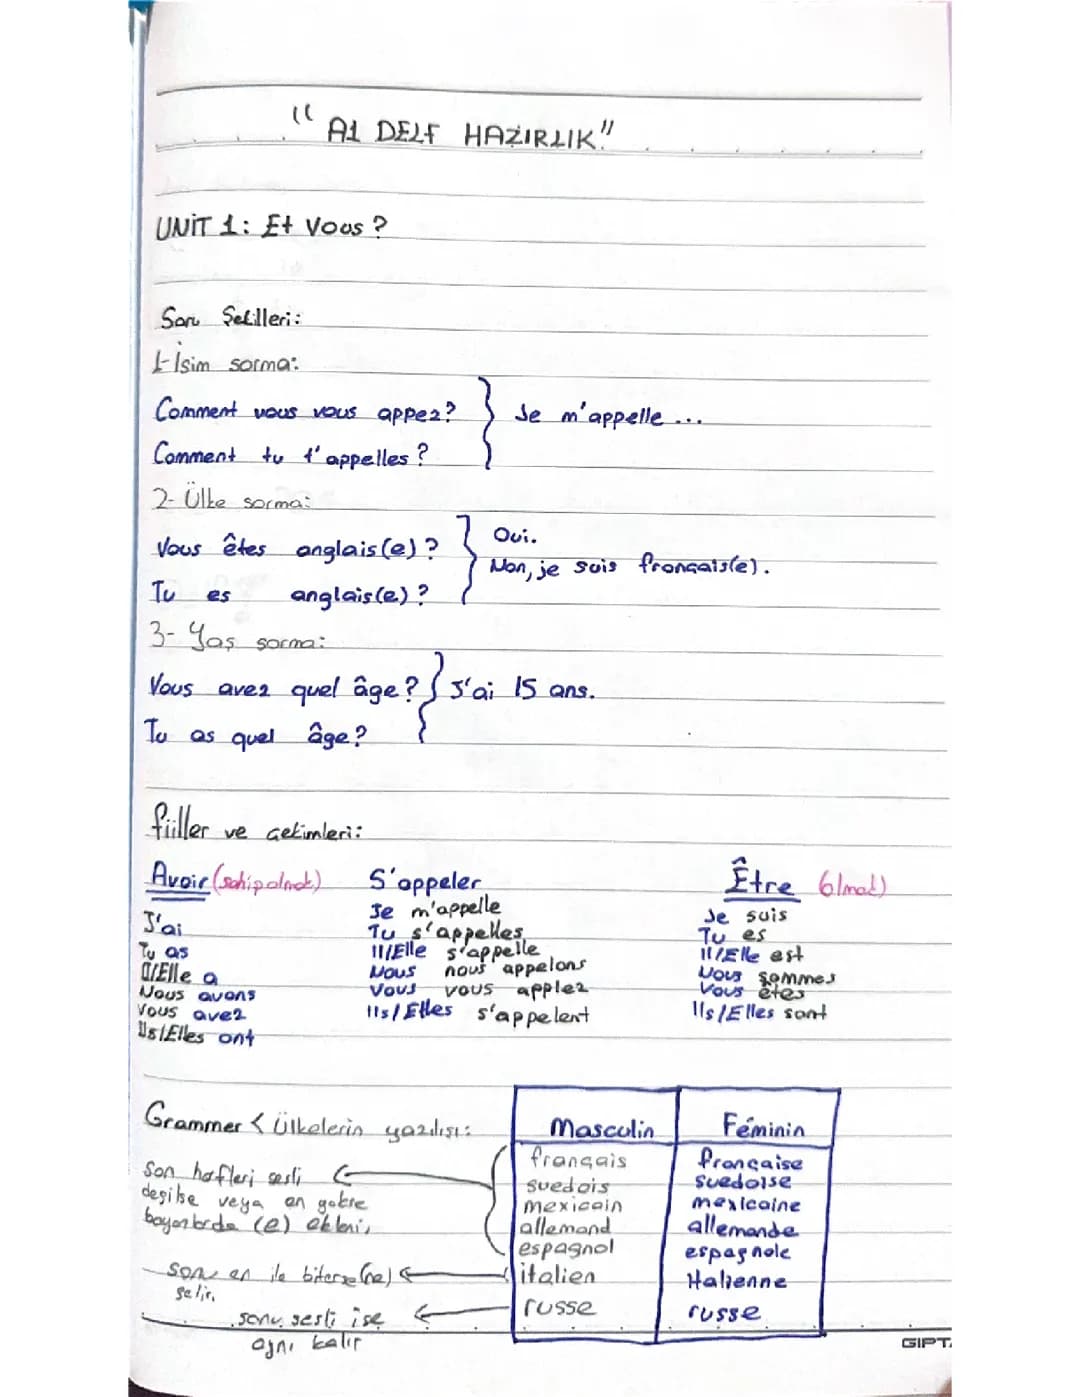 "A1 DELF HAZIRLIK"
UNİT 1: Et Vous ?
Soru Şekilleri:
1-İsim sorma:
Comment vous vous appez?
Je m'appelle ...
Comment tu t'appelles ?
2- Ülke sorma:
Vous êtes anglais(e) ?
Oui.
Non, je suis français(e).
Tu es anglais(e) ?
3- Yaş sorma:
Vous avez quel âge?
J'ai 15 ans.
Tu as quel âge?
fiiller ve çekimleri:
Avoir (sahip olmak)
J'ai
Tu as
Il/Elle a
Nous avons
Vous avez
Ils/Elles ont
S'appeler
Je m'appelle
Tu s'appelles
Il/Elle s'appelle
Nous nous appelons
Vous vous applez
Ils/Elles s'appelent
Être (olmak)
Je suis
Tu es
Il/Elle est
Nous sommes
Vous êtes
Ils/Elles sont
Grammer < Ülkelerin yazılışı:
Son harfleri sesli
değilse veya en
bayanlarda (e) eklenir,
Sonu en ile biterse (ne)
gelir,
sonu sesli ise
aynı kalır
Masculin Féminin
français française
suedois suedoise
mexicain mexicaine
allemand allemande
espagnol espagnole
italien italienne
russe russe
GIPTA